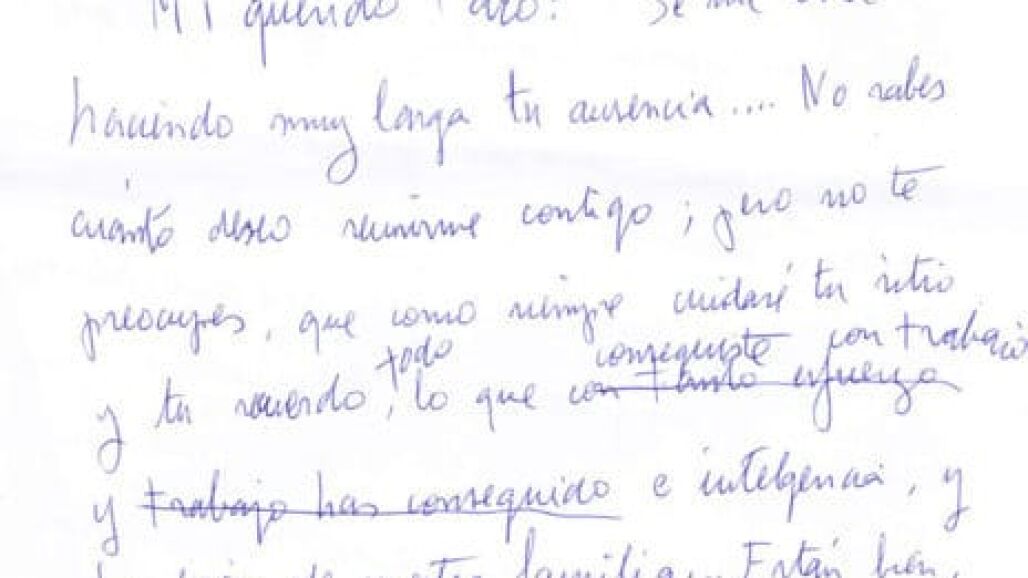 Mi querido    : Se me
haciendo muy larga tu ausencia.... No sabes
cuánto deseo reunirme contigo; pero no te
preocupes, que como siempre cuidaré tu sitio
todo conseguiste con trabajo
y tu recuerdo, lo que con tanto esfuerzo
y trabajo has conseguido e inteligencia, y
de familia. Están bien,